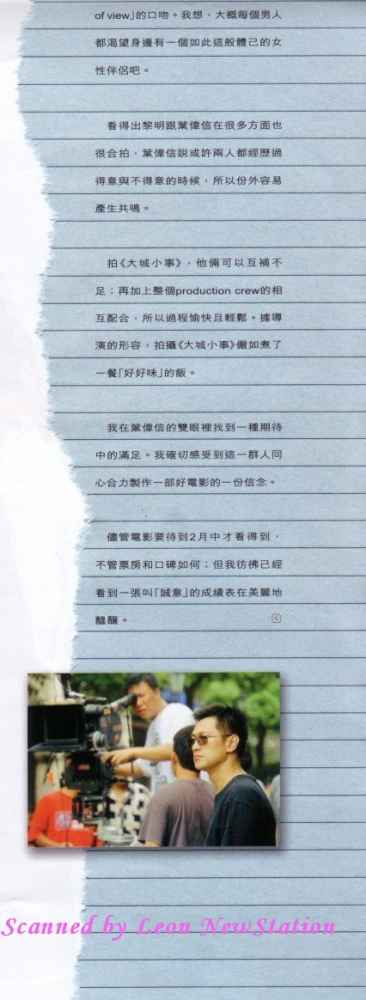 of view」的口吻。我想，大概每個男人
都渴望身邊有一個如此這般體己的女
性伴侶吧。
看得出黎明跟葉偉信在很多方面也
很合拍，葉偉信說或許兩人都經歷過
得意與不得意的時候，所以份外容易
產生共鳴。
拍《大城小事》，他倆可以互補不
足；再加上整個production crew的相
互配合，所以過程愉快且輕鬆。據導
演的形容，拍攝《大城小事》儼如煮了
一餐「好好味」的飯。
我在葉偉信的雙眼裡找到一種期待
中的滿足。我確切感受到這一群人同
心合力製作一部好電影的一份信念。
儘管電影要待到2月中才看得到，
不管票房和口碑如何；但我彷彿已經
看到一張叫「誠意」的成績表在美麗地
醞釀。
Scanned by Leon NewStation